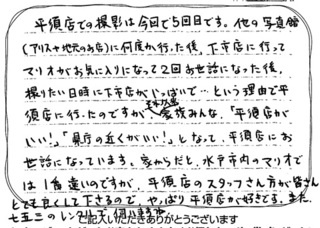 平須店での撮影は今回で5回目です。他の写真館
(アリスや地元のお店)に何度か行った後、下市店に行って
マリオがお気に入りになって2回お世話になった後、
撮りたい日時に下市店がいっぱいで…という理由で平
須店に行ったのですが、それ以来家族みんな、「平須店が
いい!」「県庁の近くがいい!」となって、平須店にお
世話になっています。家からだと、水戸市内のマリオで
は1番遠いのですが、平須店のスタッフさん方が皆さん
とても良くして下さるので、やっぱり平須店が好きです。また、
七五三のレンタルで伺いますね
ご記入いただきありがとうございます